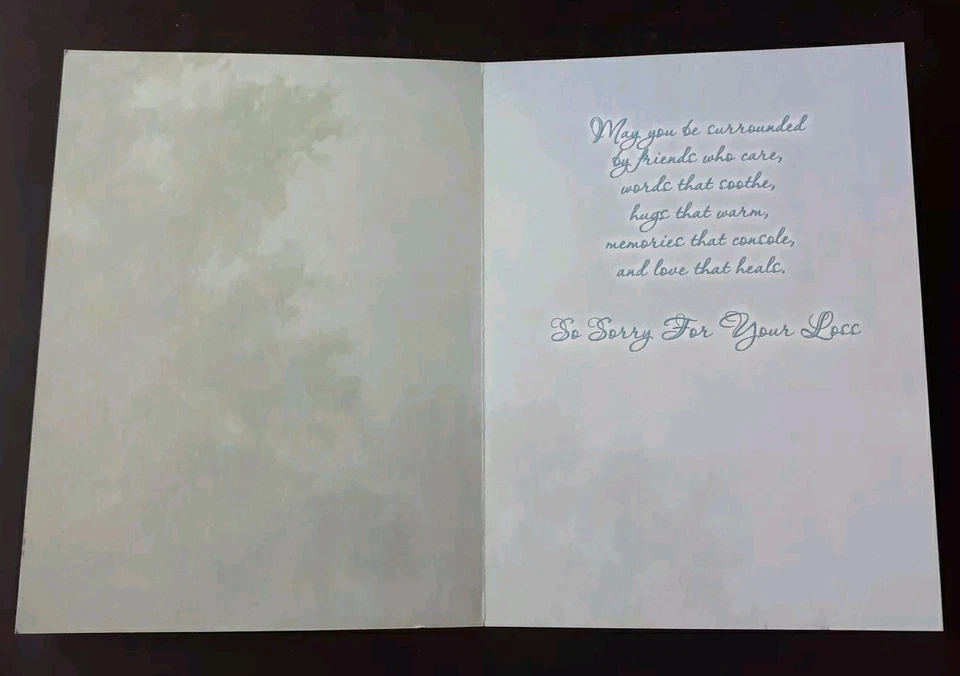 May you be surrounded
by friends who care,
words that soothe,
hugs that warm,
memories that console,
and love that heals.
So Sorry For Your Loss